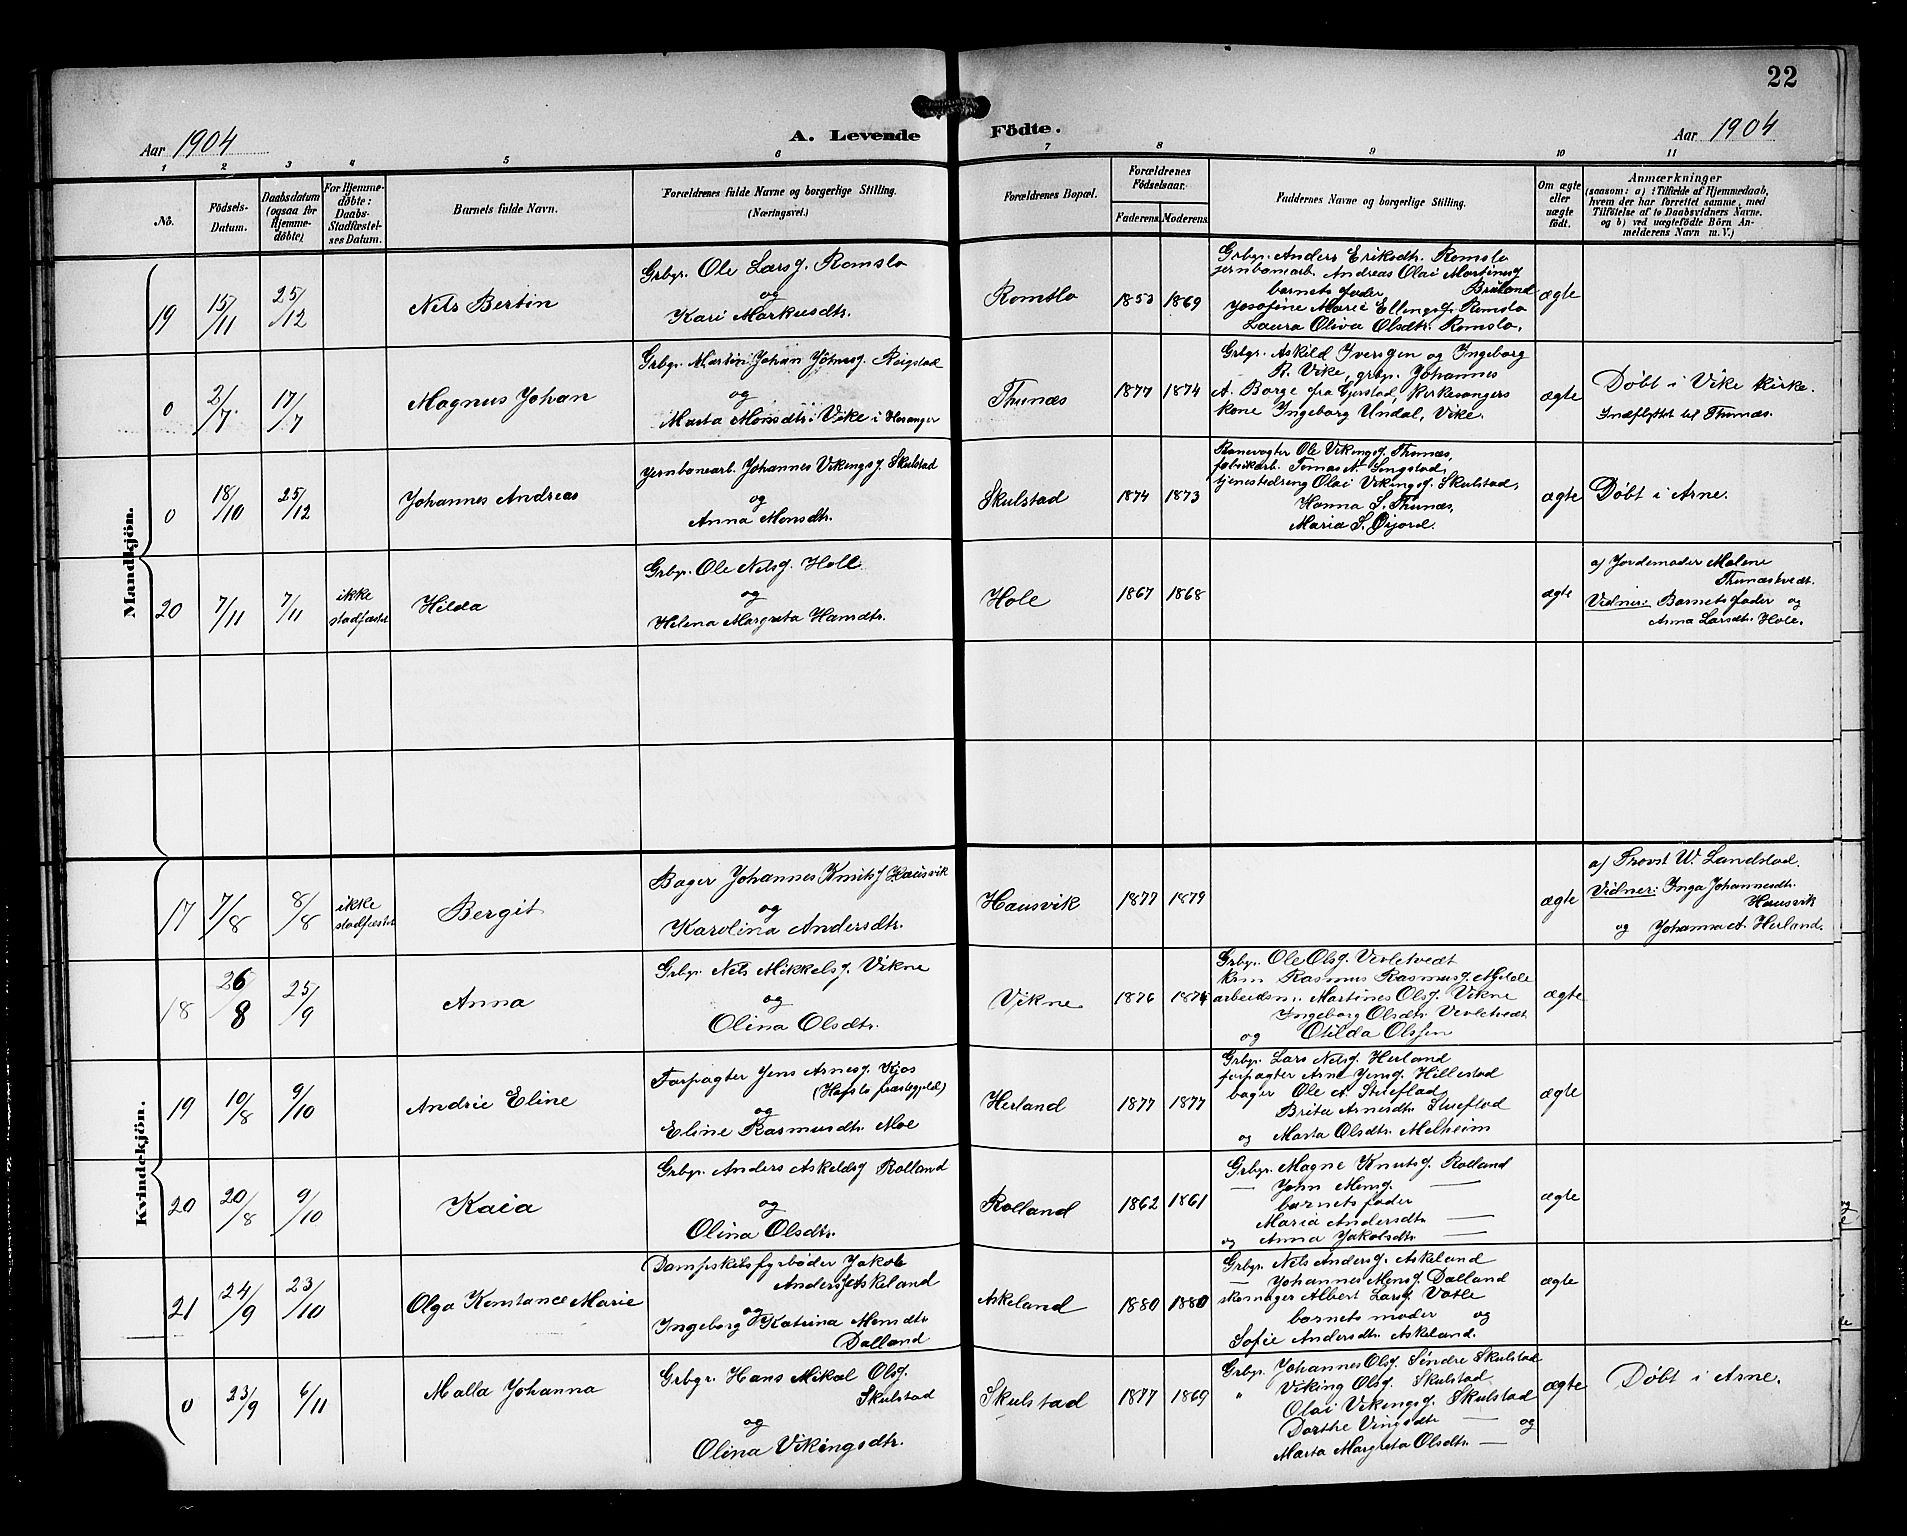 22
Aar 1904
A. Levende Födte.
Aar 1904
1 2 3 4 5 6 7 8 9 10 11
Nô.
Födsels-
Datum.
Daabsdatum
(ogsaa for
Hjemme-
döbte)
For Hjemme-
döbte:
Daabs-
Stadfæstel-
ses Datum.
Barnets fulde Navn.
Forældrenes fulde Navne og borgerlige Stilling.
(Næringsvei.)
Forældrenes Bopæl.
Forældrenes
Födselsaar.
Faderens. Moderens.
Faddernes Navne og borgerlige Stilling.
Om ægte
eller
uægte
födt.
Anmærkninger
(saasom: a) i Tilfælde af Hjemmedaab,
hvem der har forrettet samme, med
Tilföielse af to Daabsvidners Navne.
og b) ved uægtefödte Börn An-
melderens Navn m. V.)
Mandkjön.
19
15/11
25/12
Nils Bertin
Grbgr. Ole Larsg. Romslo
og
Kari Markusdtr.
Romslo
1853
1869
Grbgr. Anders Eriksdtr. Romslo
jernbanearb. Andreas Olai Martinusg
barnets fader
Josefine Marie Ellingsg. Romslo
Laura Oliva Olsdtr. Romslo.
ægte
0
2/7
17/7
Magnus Johan
Grbgr. Martin Johan Johnsg. Reigstad
og
Marta Monsdtr. Vike i Haranger
Thunæs
1877
1874
Grbgr. Askild Iversgen og Ingeborg
R. Vike, grbgr. Johannes
A. Borge fra Gjerstad, Kirkesangers
kone Ingeborg Undal, Vike.
ægte
Døbt i Vike kirke.
Indflyttet til Thunæs.
0
18/10
25/12
Johannes Andreas
jernbanearb. Johannes Vikingsg. Skulstad
og
Anna Monsdtr.
Skulstad
1874
1873
Banevogter Ole Vikingsg. Thunæs,
fabrikarb. Tomas N. Songstad,
tjenestedreng Olai Vikingsg. Skulstad,
Hanna S. Thunæs,
Maria S. Øijord.
ægte
Døbt i Arne.
20
7/11
7/11
ikke
stadfæstet
Hilda
Grbgr. Ole Nilsg. Holl
og
Helena Margreta Hansdtr.
Hole
1867
1868
ægte
a) Jordemoder Malene
Thunæstvedt.
Vidner: Barnets fader og
Anna Larsdtr. Hole.
Kvindekjön.
17
7/8
8/8
ikke
stadfæstet
Bergit
Bager Johannes Knutsg Hausvik
og
Karolina Andersdtr.
Hausvik
1877
1879
ægte
a) Provst W. Landstad.
Vidner: Inga Johannesdtr.
Hausvik
og Johanna A. Herland.
18
26/8
25/9
Anna
Grbgr. Nils Mikkelsg. Vikne
og
Olina Olsdtr.
Vikne
1876
1874
Grbgr. Ole Olsg. Veoletvedt
Rasmus Rasmusg. Mjelde
arbeidsm. Martines Olsg. Vikne
Ingeborg Olsdtr. Veoletvedt
og Otilda Olssen
ægte
19
10/8
9/10
Andrie Eline
Forpagter Jens Arnesg. Kjos
(Hafslo præstegjeld)
og
Eline Rasmusdtr. Moe
Herland
1877
1877
Grbgr. Lars Nilsg. Herland
forpagter Arne Jensg. Hillestad
bager Ole A. Stueflad
Brita Arnesdtr. Stueflod
og Marta Olsdtr. Melheim
ægte
20
20/8
9/10
Kaia
Grbgr. Anders Askeldsg Rolland
og
Olina Olsdtr.
Rolland
1862
1861
Grbgr. Magne Knutsg. Rolland
— John Monsg. —
barnets fader
Maria Andersdtr. —
og Anna Jakobsdtr. —
ægte
21
24/9
23/10
Olga Konstance Marie
Dampskibsfyrbøder Jakob
Andersg Askeland
og
Ingeborg Katrina Monsdtr.
Dalland
Askeland
1880
1880
Grbgr. Nils Andersg. Askeland
— Johannes Monsg. Dalland
skomager Albert Larsg. Vatle
barnets moder og
Sofie Andersdtr. Askeland.
ægte
0
23/9
6/11
Malla Johanna
Grbgr. Hans Mikal Olsg.
Skulstad
og
Olina Vikingsdtr.
Skulstad
1877
1869
Grbgr. Johannes Olsg. Søndre Skulstad
" Viking Olsg. Skulstad
Olai Vikingsg. Skulstad
Dorthe Vingsdtr — og
Marta Margreta Olsdtr. —
ægte
Døbt i Arne.